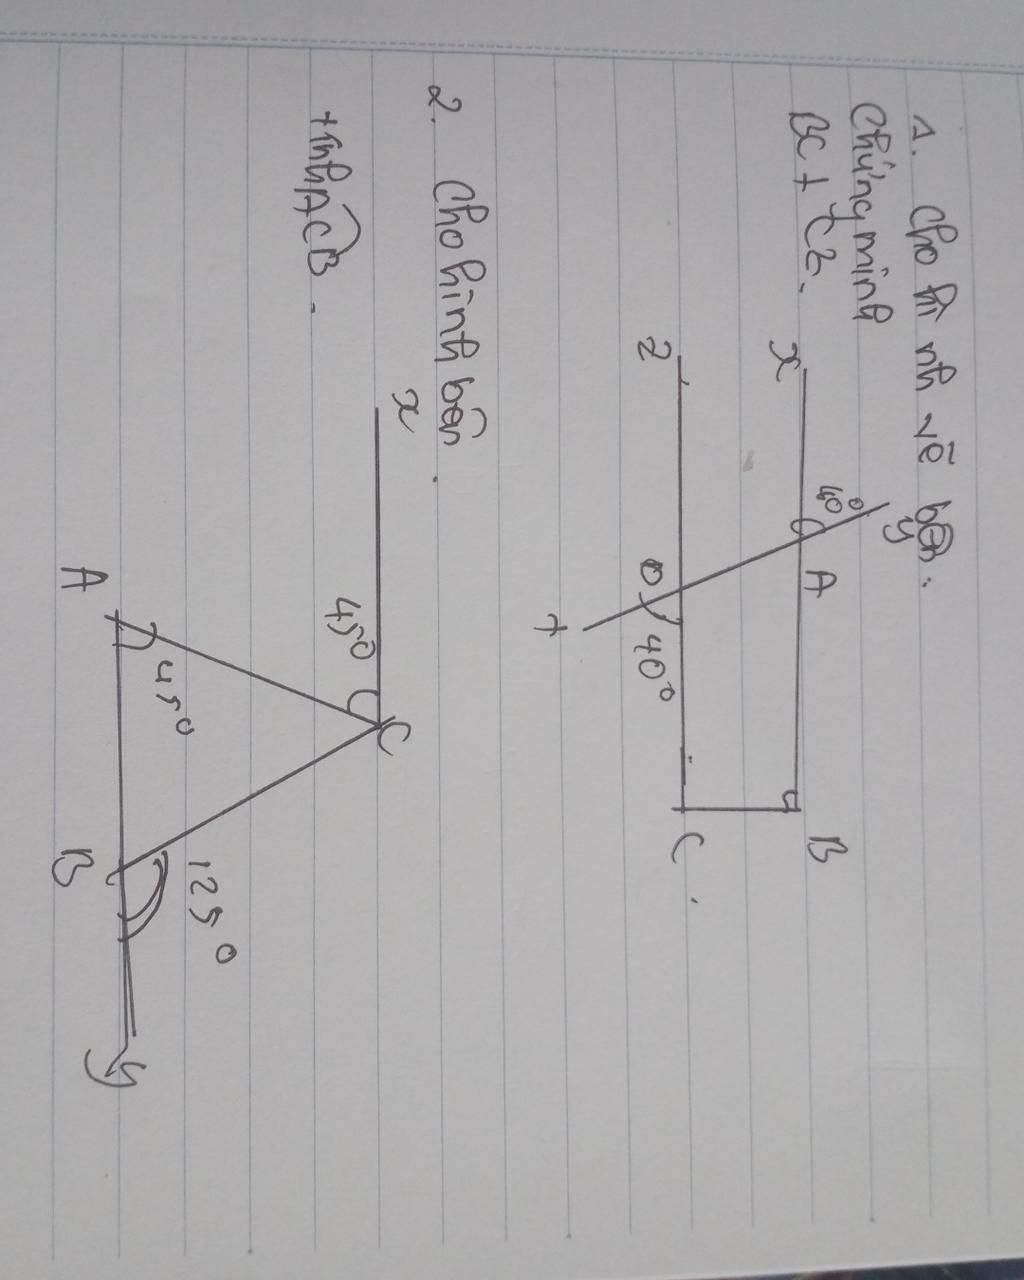 1. Cho hình vẽ bên.
Chứng minh
BC ⊥ Cz.
y
40°
x
A
B
z
D
40°
t
C
2. Cho hình bên.
+ tính ACB.
x
45°
C
A
45°
B
125°
y